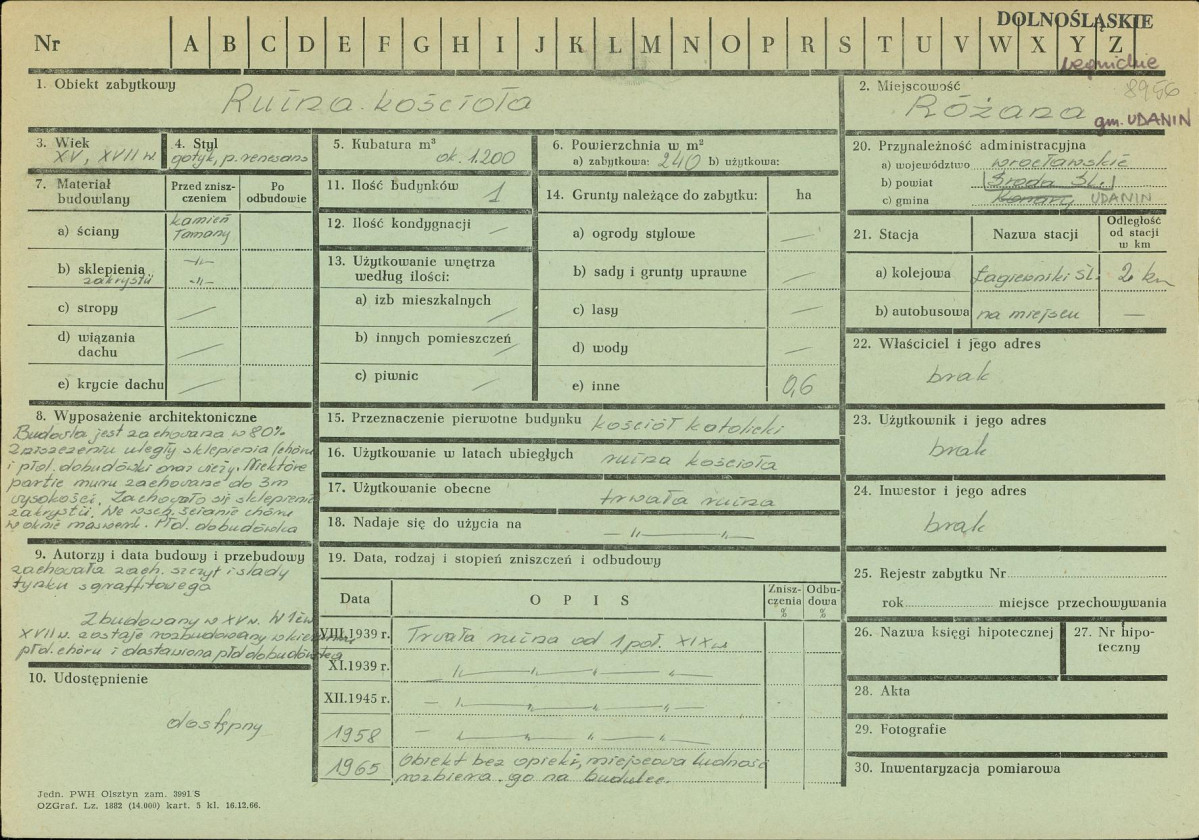 DOLNOŚLĄSKIE
Nr A B C D E F G H I J K L M N O P R S T U V W X Y Z
legnickie
1. Obiekt zabytkowy
Ruina kościoła
2. Miejscowość 8956
Różana gm. UDANIN
3. Wiek
XV, XVII w
4. Styl
gotyk, p. renesans
5. Kubatura m³
ok. 1.200
6. Powierzchnia w m²
a) zabytkowa: 240 b) użytkowa:
20. Przynależność administracyjna
a) województwo wrocławskie
b) powiat Środa Śl.
c) gmina UDANIN
7. Materiał budowlany
Przed zniszczeniem
Po odbudowie
a) ściany kamień łamany
b) sklepienia —„—
zakrystii —„—
c) stropy —
d) wiązania dachu —
e) krycie dachu —
11. Ilość budynków 1
12. Ilość kondygnacji —
13. Użytkowanie wnętrza
według ilości:
a) izb mieszkalnych —
b) innych pomieszczeń —
c) piwnic —
14. Grunty należące do zabytku: ha
a) ogrody stylowe —
b) sady i grunty uprawne —
c) lasy —
d) wody —
e) inne 0,6
21. Stacja Nazwa stacji Odległość od stacji w km
a) kolejowa Łagiewniki Śl. 2 km
b) autobusowa na miejscu —
22. Właściciel i jego adres
brak
23. Użytkownik i jego adres
brak
24. Inwestor i jego adres
brak
8. Wyposażenie architektoniczne
Budowla jest zachowana w 80%
Zniszczeniu uległy sklepienia (chóru
i płd. dobudówki oraz wieży. Niektóre
partie muru zachowane do 3m
wysokości. Zachowało się sklepienie
zakrystii. We wsch. ścianie chóru
w oknie maswerk. Płd. dobudówka
9. Autorzy i data budowy i przebudowy
zachowała zach. szczyt i ślady
tynku sgraffitowego
Zbudowany w XV w. W I ćw
XVII w. zostaje rozbudowany w kierunku
płd. chóru i dostawiona płd dobudówka
10. Udostępnienie
dostępny
15. Przeznaczenie pierwotne budynku kościół katolicki
16. Użytkowanie w latach ubiegłych ruina kościoła
17. Użytkowanie obecne trwała ruina
18. Nadaje się do użycia na —„—„—
19. Data, rodzaj i stopień zniszczeń i odbudowy
Data OPIS Zniszczenia % Odbudowa %
VIII.1939 r. Trwała ruina od 1 poł. XIX w
XI.1939 r. —„—„—„—„—
XII.1945 r. —„—„—„—„—
1958 —„—„—„—„—
1965 Obiekt bez opieki, miejscowa ludność
rozbiera go na budulec.
25. Rejestr zabytku Nr
rok miejsce przechowywania
26. Nazwa księgi hipotecznej
27. Nr hipoteczny
28. Akta
29. Fotografie
30. Inwentaryzacja pomiarowa
Jedn. PWH Olsztyn zam. 3991 S
OZGraf. Lz. 1882 (14.000) kart. 5 kl. 16.12.66.